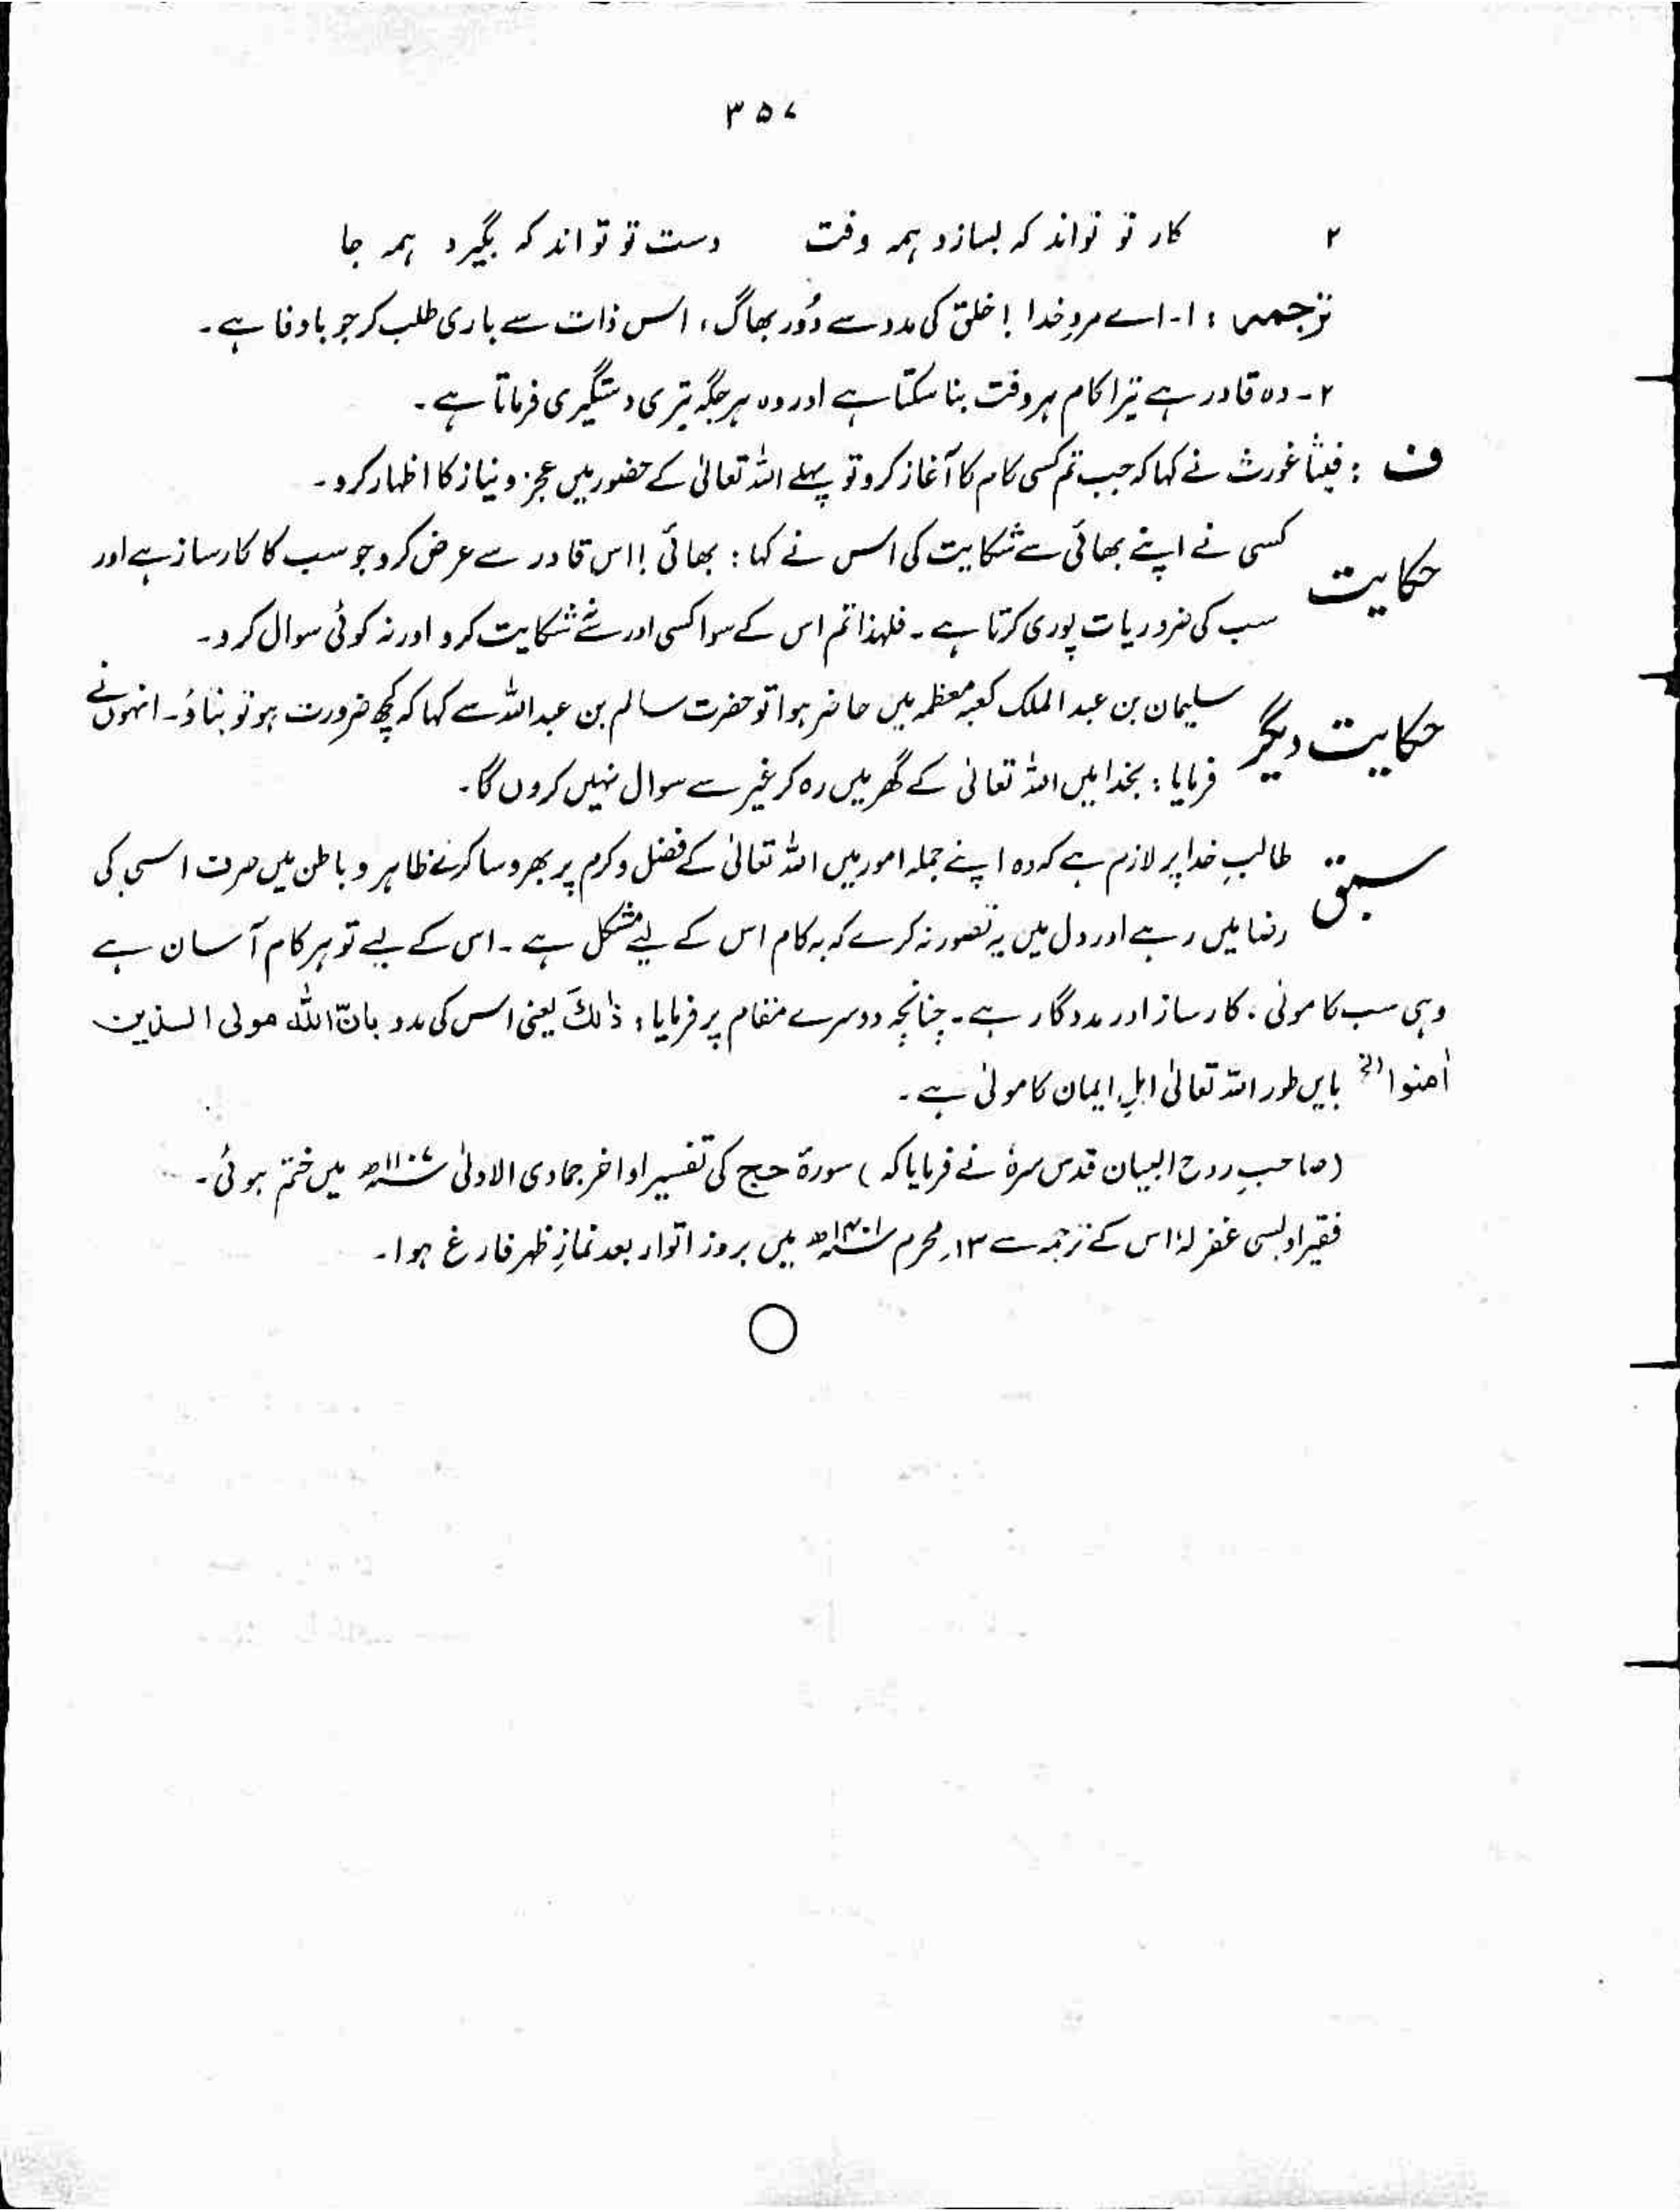 ۳۵۷
۲ کار تو تواند کہ بسازد ہمہ وقت دست تو تواند کہ بگیرد ہمہ جا
ترجمہ : ۱۔ اے مردِ خدا ! خلق کی مدد سے دُور بھاگ، اس ذات سے یاری طلب کر جو باوفا ہے۔
۲۔ وہ قادر ہے تیرا کام ہر وقت بنا سکتا ہے اور وہ ہر جگہ تیری دستگیری فرماتا ہے۔
ف : فیثاغورث نے کہا کہ جب تم کسی کام کا آغاز کرو تو پہلے اللہ تعالیٰ کے حضور میں عجز و نیاز کا اظہار کرو۔
حکایت کسی نے اپنے بھائی سے شکایت کی اس نے کہا : بھائی ! اس قادر سے عرض کرو جو سب کا کارساز ہے اور
سب کی ضروریات پوری کرتا ہے۔ فلہذا تم اس کے سوا کسی اور سے نہ شکایت کرو اور نہ کوئی سوال کرو۔
حکایت دیگر سلیمان بن عبد الملک کعبہ معظمہ میں حاضر ہوا تو حضرت سالم بن عبداللہ سے کہا کہ کچھ ضرورت ہو تو بتاؤ۔ انہوں نے
فرمایا : بخدا میں اللہ تعالیٰ کے گھر میں رہ کر غیر سے سوال نہیں کروں گا۔
سبق طالبِ خدا پر لازم ہے کہ وہ اپنے جملہ امور میں اللہ تعالیٰ کے فضل و کرم پر بھروسا کرے ظاہر و باطن میں صرف اسی کی
رضا میں رہے اور دل میں یہ تصور نہ کرے کہ یہ کام اس کے لیے مشکل ہے۔ اس کے لیے تو ہر کام آسان ہے
وہی سب کا مولیٰ، کارساز اور مددگار ہے۔ چنانچہ دوسرے مقام پر فرمایا : ذٰلکَ یعنی اس کی مدد بانّ اللہ مولی الذین
اٰمنوا الخ بایں طور اللہ تعالیٰ اہلِ ایمان کا مولیٰ ہے۔
(صاحبِ روح البیان قدس سرہٗ نے فرمایا کہ) سورۂ حج کی تفسیر اواخر جمادی الاولیٰ ۱۱۰۷ھ میں ختم ہوئی۔
فقیر اویسی غفرلہٗ اس کے ترجمہ سے ۱۳ محرم ۱۴۰۱ھ میں بروز اتوار بعد نمازِ ظہر فارغ ہوا۔